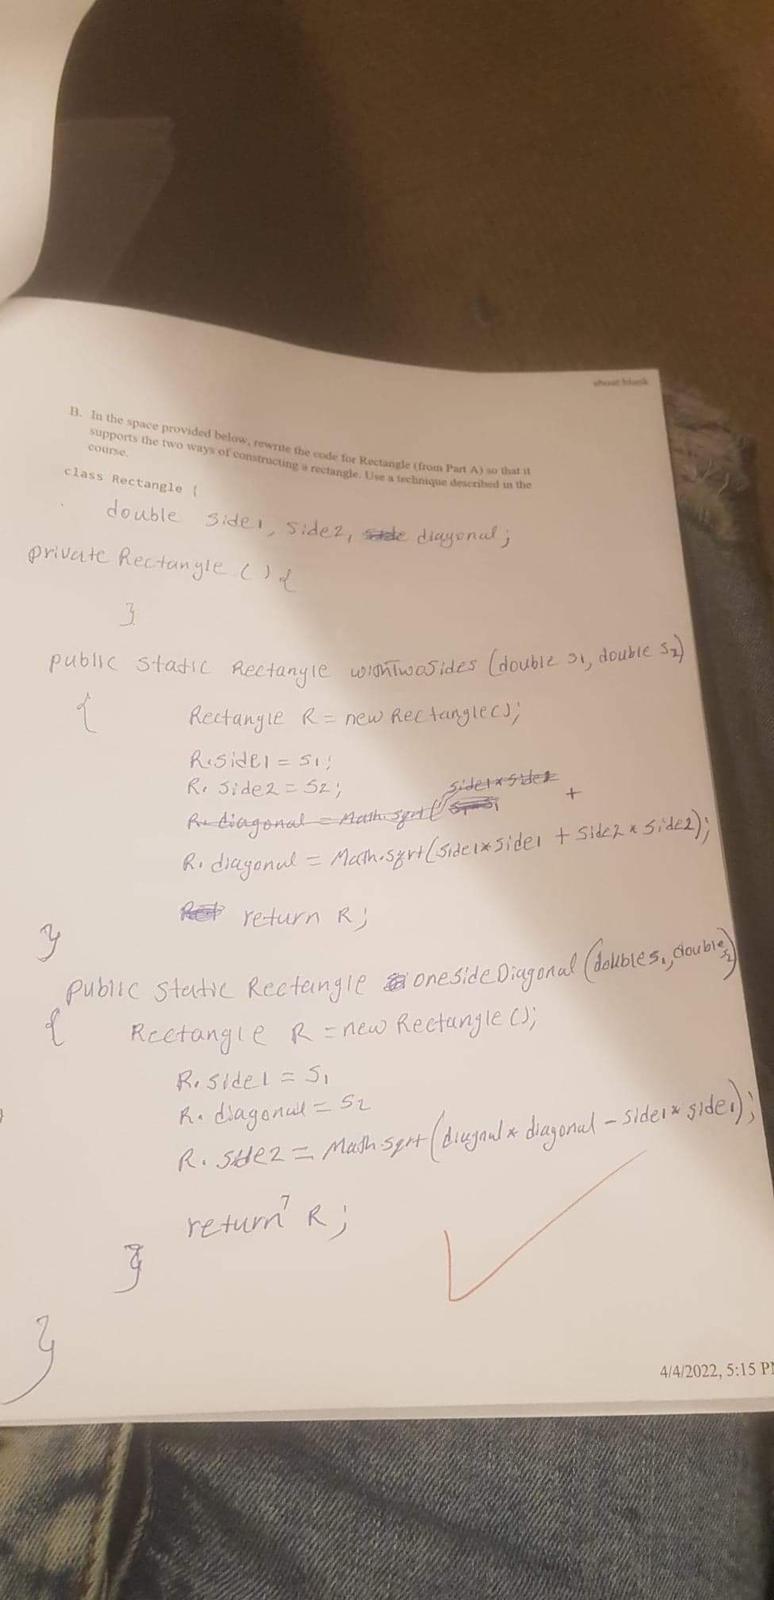 about:blank
B. In the space provided below, rewrite the code for Rectangle (from Part A) so that it
supports the two ways of constructing a rectangle. Use a technique described in the
course.
class Rectangle {
double side1, side2, side diagonal;
private Rectangle () {
}
public static Rectangle withTwoSides (double s1, double s2)
{ Rectangle R = new Rectangle();
R.side1 = s1;
R. side2 = s2;
side1*side1
R. diagonal = Math.sqrt( +
R. diagonal = Math.sqrt(side1*side1 + side2 * side2);
Ret return R;
}
public static Rectangle onesideDiagonal (double s1, double s2)
{ Rectangle R = new Rectangle();
R. side1 = s1
R. diagonal = s2
R. side2 = Math.sqrt(diagnal * diagonal - side1* side1);
return R;
}
}
4/4/2022, 5:15 P